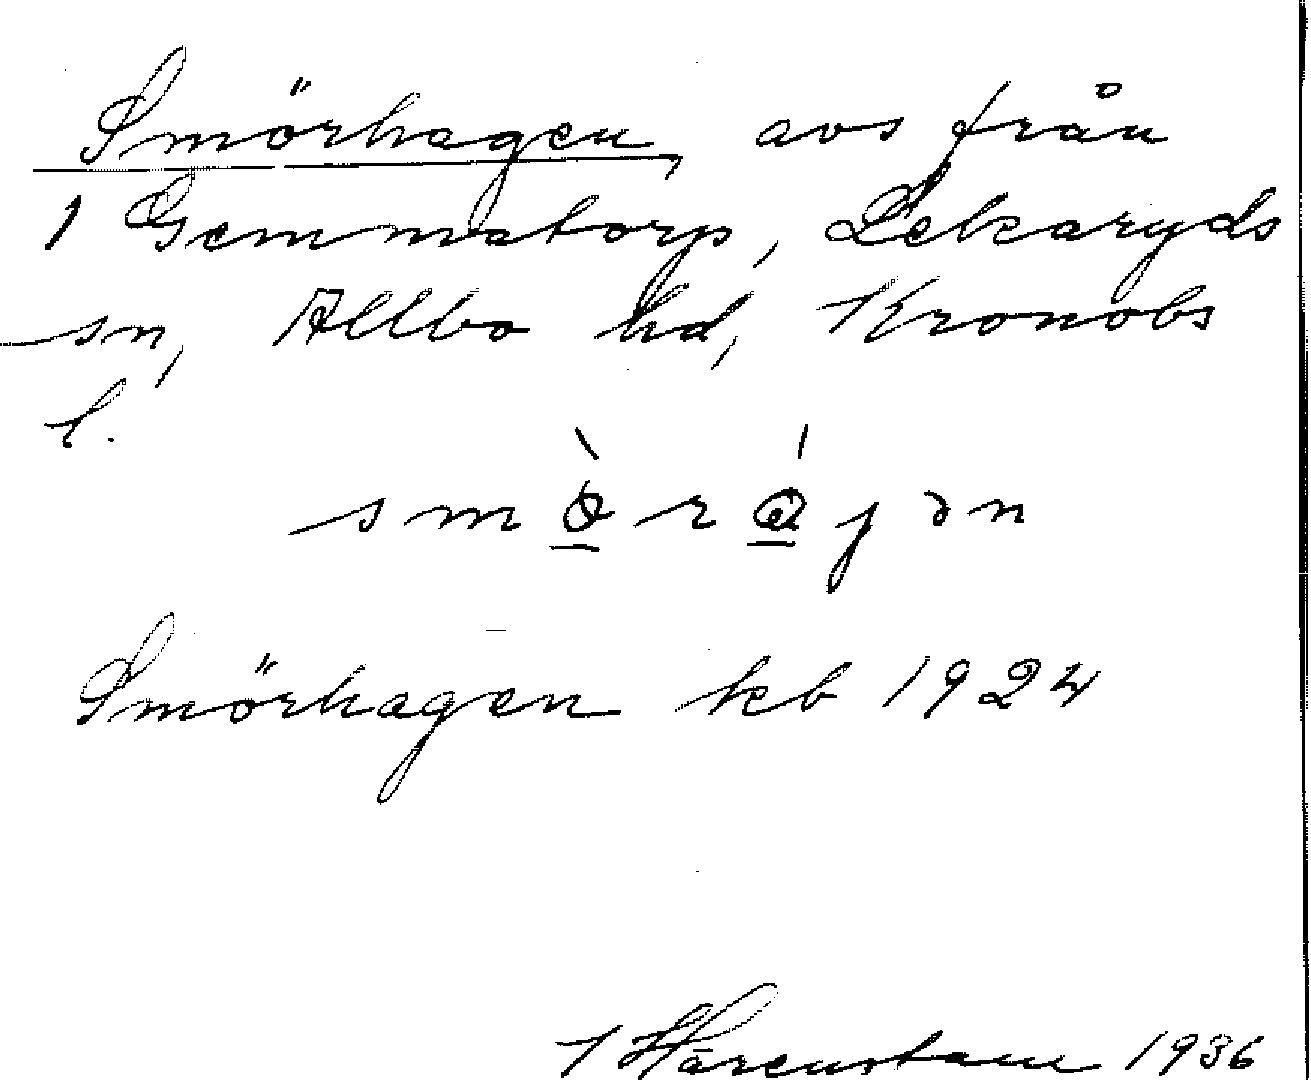 Smörhagen, avs från
1 Gemmatorp, Lekaryds
sn, Allbo hd, Kronobs
l.
Smörhagen kb 1924
1936